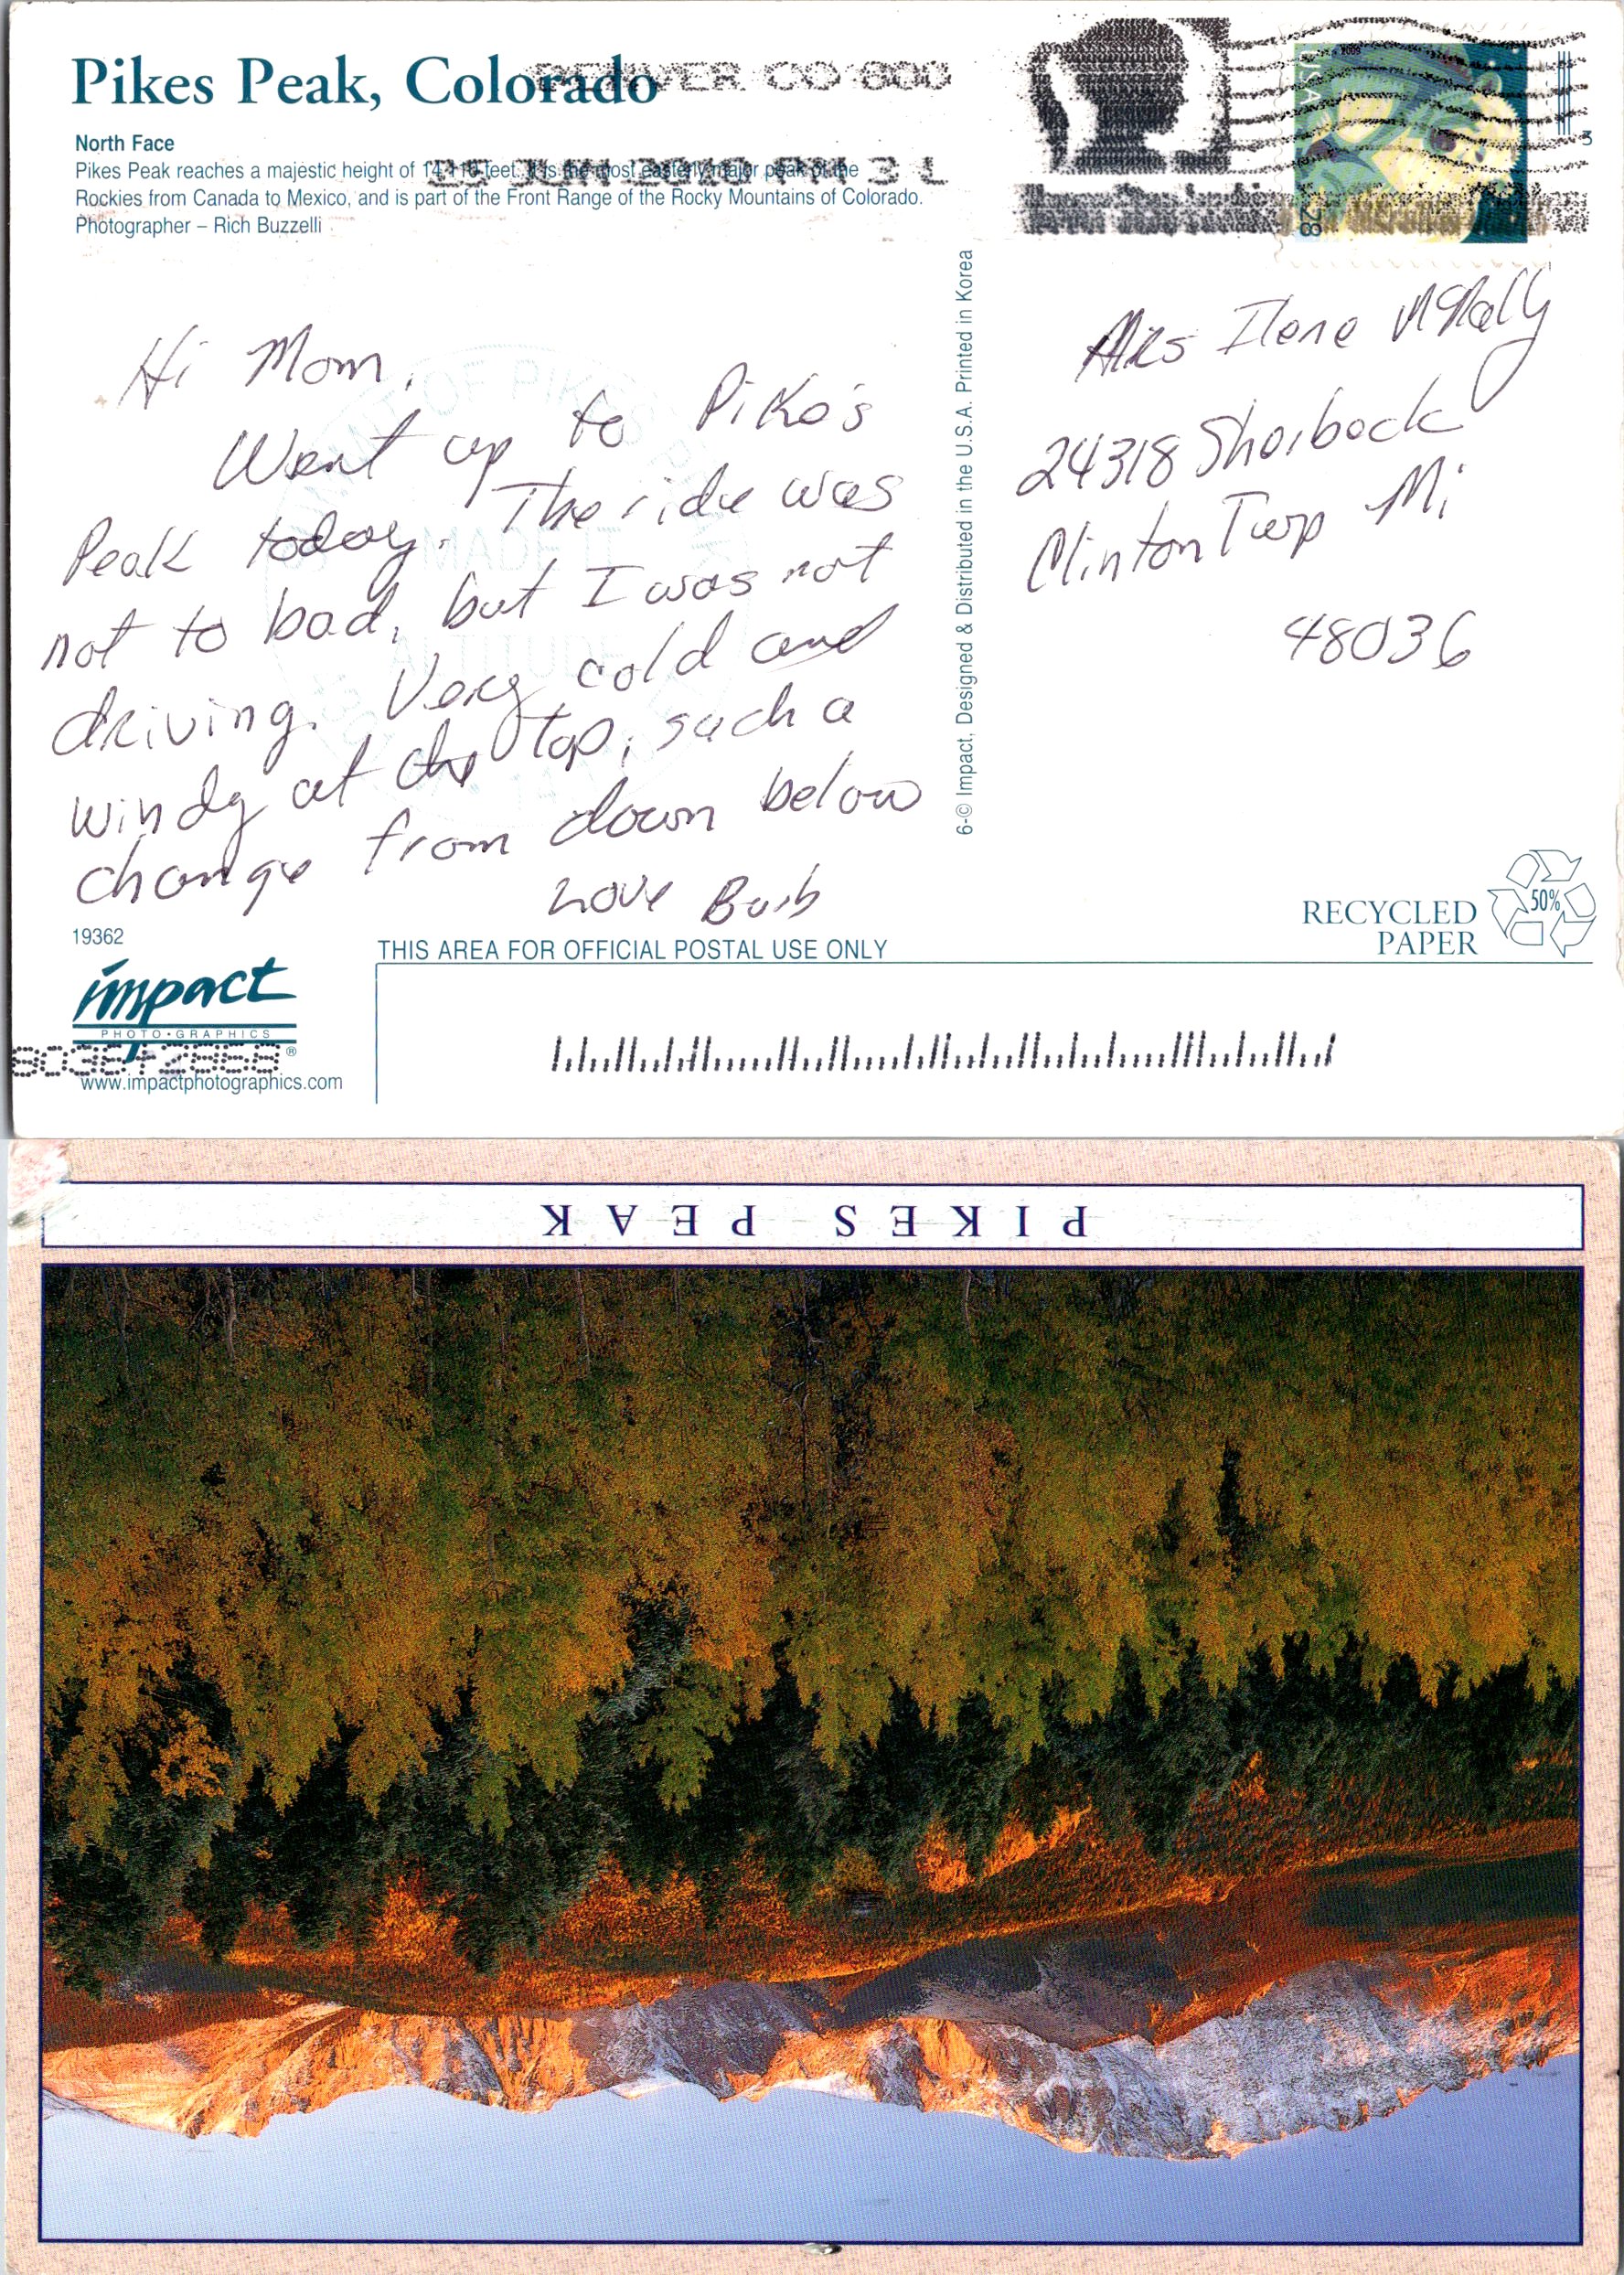 Pikes Peak, Colorado
DENVER CO 800
North Face
Pikes Peak reaches a majestic height of 14,110 feet. It is the most easterly major peak of the
25 JUN 2010 PM 3 L
Rockies from Canada to Mexico, and is part of the Front Range of the Rocky Mountains of Colorado.
Photographer – Rich Buzzelli
USA
2009
28
Hi Mom,
Went up to Pike's
Peak today. The ride was
not to bad, but I was not
driving. Very cold and
windy at the top, such a
change from down below
Love Barb
MADE IT
ALTITUDE
6-© Impact, Designed & Distributed in the U.S.A. Printed in Korea
Mrs Ilene McNally
24318
Clinton Twp Mi
48036
RECYCLED
PAPER
50%
19362
THIS AREA FOR OFFICIAL POSTAL USE ONLY
impact
PHOTO•GRAPHICS®
www.impactphotographics.com
PIKES PEAK